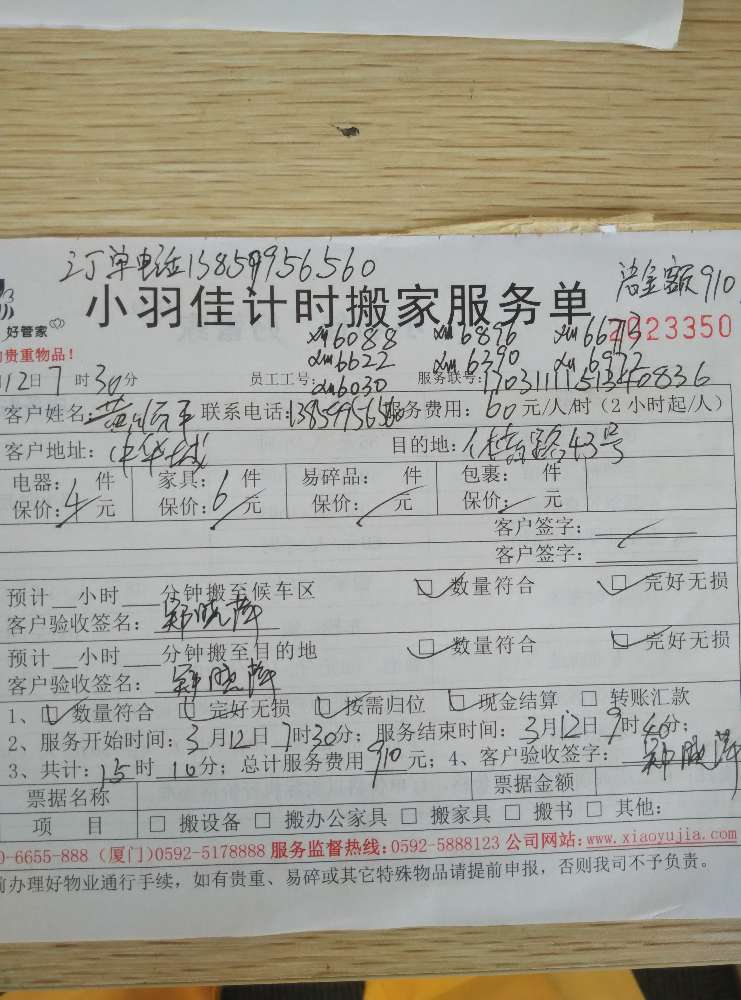 订单电话13859956560
总金额910
小羽佳计时搬家服务单
好管家
贵重物品！
xm6088 xm6896 xm6673
2023350
xm6622 xm6390 xm6972
12日7时30分 员工工号: xm6030 服务联号:
客户姓名: 联系电话: 服务费用: 60元/人/时（2小时起/人）
客户地址: 中华城 目的地: 43号
电器: 4件 家具: 6件 易碎品: 件 包裹: 件
保价: 元 保价: 元 保价: 元 保价: 元
客户签字:
客户签字:
预计__小时___分钟搬至候车区 □ 数量符合 □ 完好无损
客户验收签名: 郑晓萍
预计__小时___分钟搬至目的地 □ 数量符合 □ 完好无损
客户验收签名: 郑晓萍
1、□ 数量符合 □ 完好无损 □ 按需归位 □ 现金结算 □ 转账汇款
2、服务开始时间: 3月12日7时30分; 服务结束时间: 3月12日9时40分;
3、共计: 15时10分; 总计服务费用910元; 4、客户验收签字: 郑晓萍
票据名称 票据金额
项 目 □ 搬设备 □ 搬办公家具 □ 搬家具 □ 搬书 □ 其他:
0-6655-888 (厦门)0592-5178888 服务监督热线:0592-5888123 公司网站:www.xiaoyujia.com
前办理好物业通行手续，如有贵重、易碎或其它特殊物品请提前申报，否则我司不予负责。